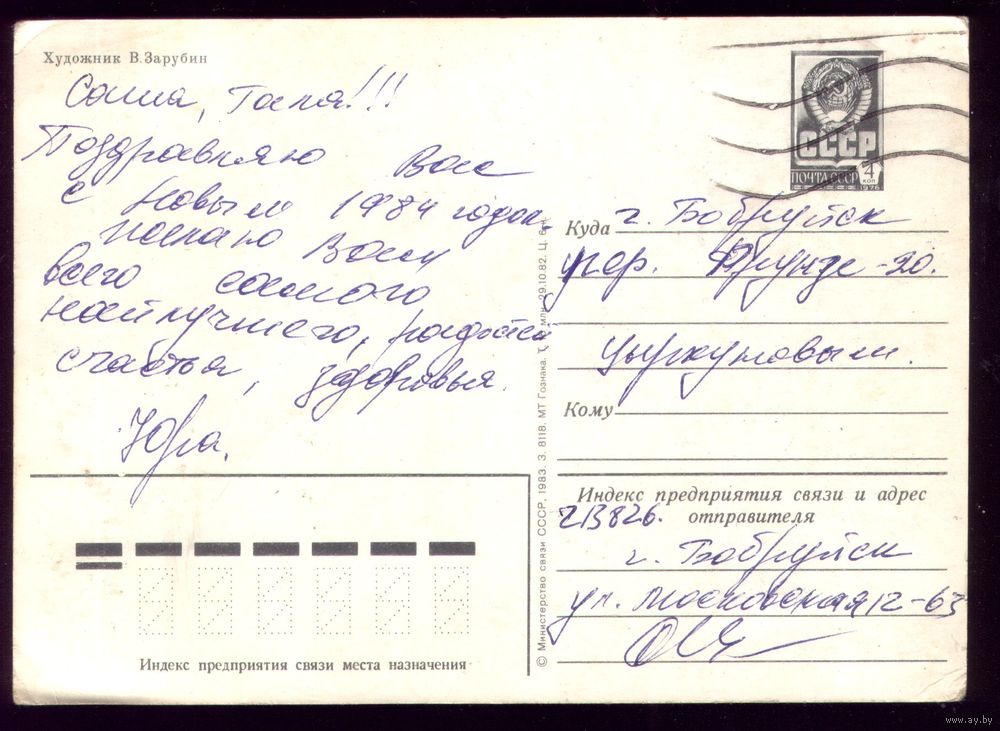 Художник В. Зарубин
Саша, Галя!!!
Поздравляю Вас
с Новым 1984 годом,
желаю Вам
всего самого
наилучшего, радости
счастья, здоровья.
Юра.
СССР
ПОЧТА СССР 4 КОП
1976
Куда г. Бобруйск
Фрунзе-20.
Кому
© Министерство связи СССР, 1983. З. 8118. МТ Гознака. млн 29.10.82. Ц.
Индекс предприятия связи и адрес
отправителя
213826.
г. Бобруйск
ул. Московская 12-63
Индекс предприятия связи места назначения
www.ay.by